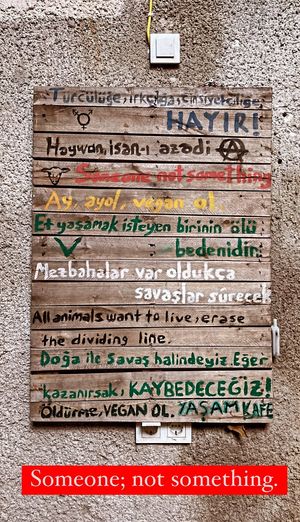 Türcülüğe, ırkçılığa, cinsiyetçiliğe,
HAYIR!
Hayvan, isan-ı azadi
Someone not something
Ay, ayol, vegan ol.
Et yaşamak isteyen birinin ölü
bedenidir.
Mezbahalar var oldukça
savaşlar sürecek
All animals want to live; erase
the dividing line.
Doğa ile savaş halindeyiz. Eğer
kazanırsak, KAYBEDECEĞİZ!
Öldürme, VEGAN OL. YAŞAM KAFE
Someone; not something.